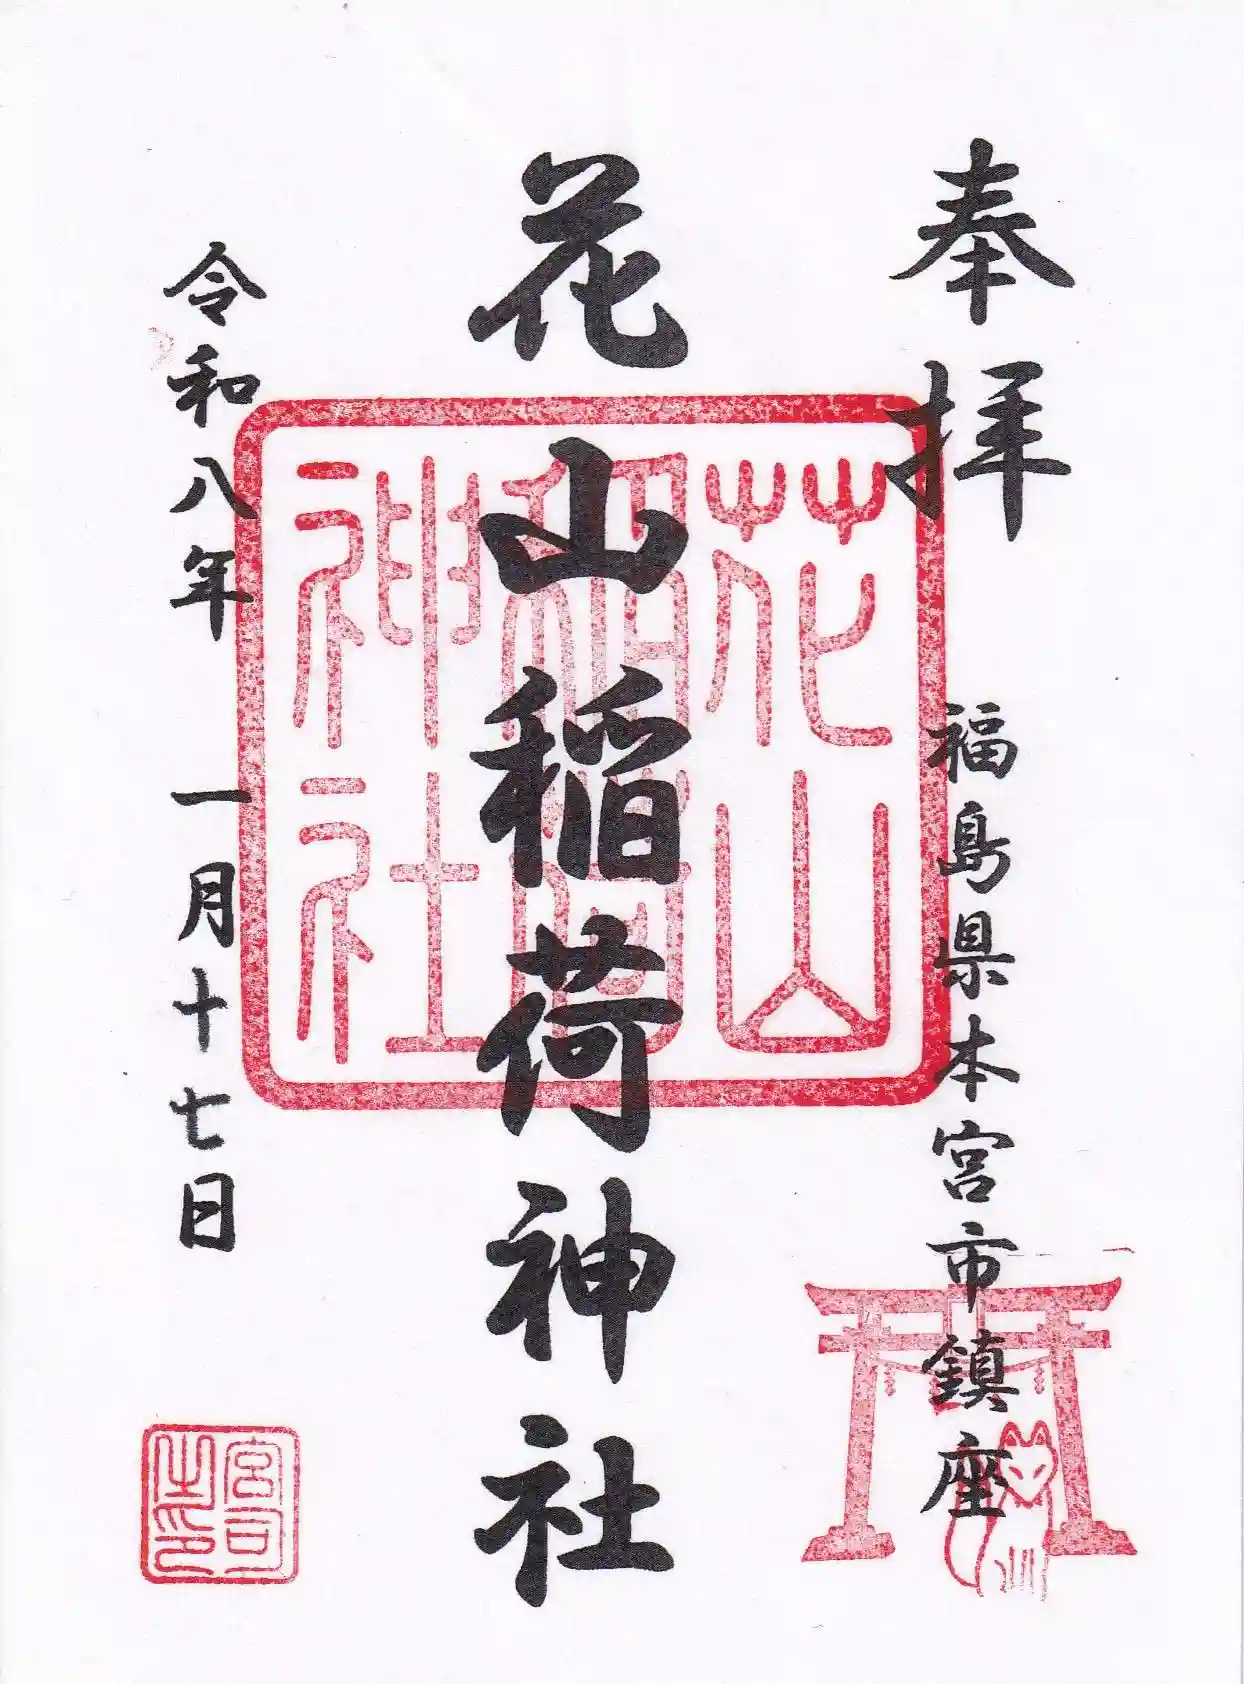 奉拝
福島県本宮市鎮座
花山稲荷神社
花山
稲荷
神社
令和八年 一月十七日
宮司
之印